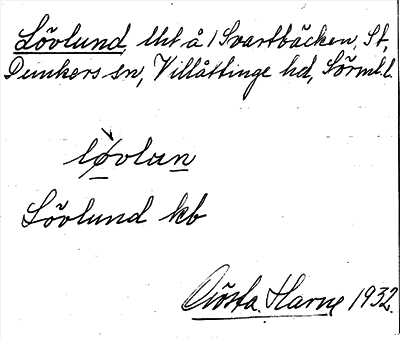 Lövlund, lht å 1 Svartbäcken, St,
Dunkers sn, Villåttinge hd, Sörml. l.
lø̀vlan
Lövlund kb
Gösta Harne 1932.